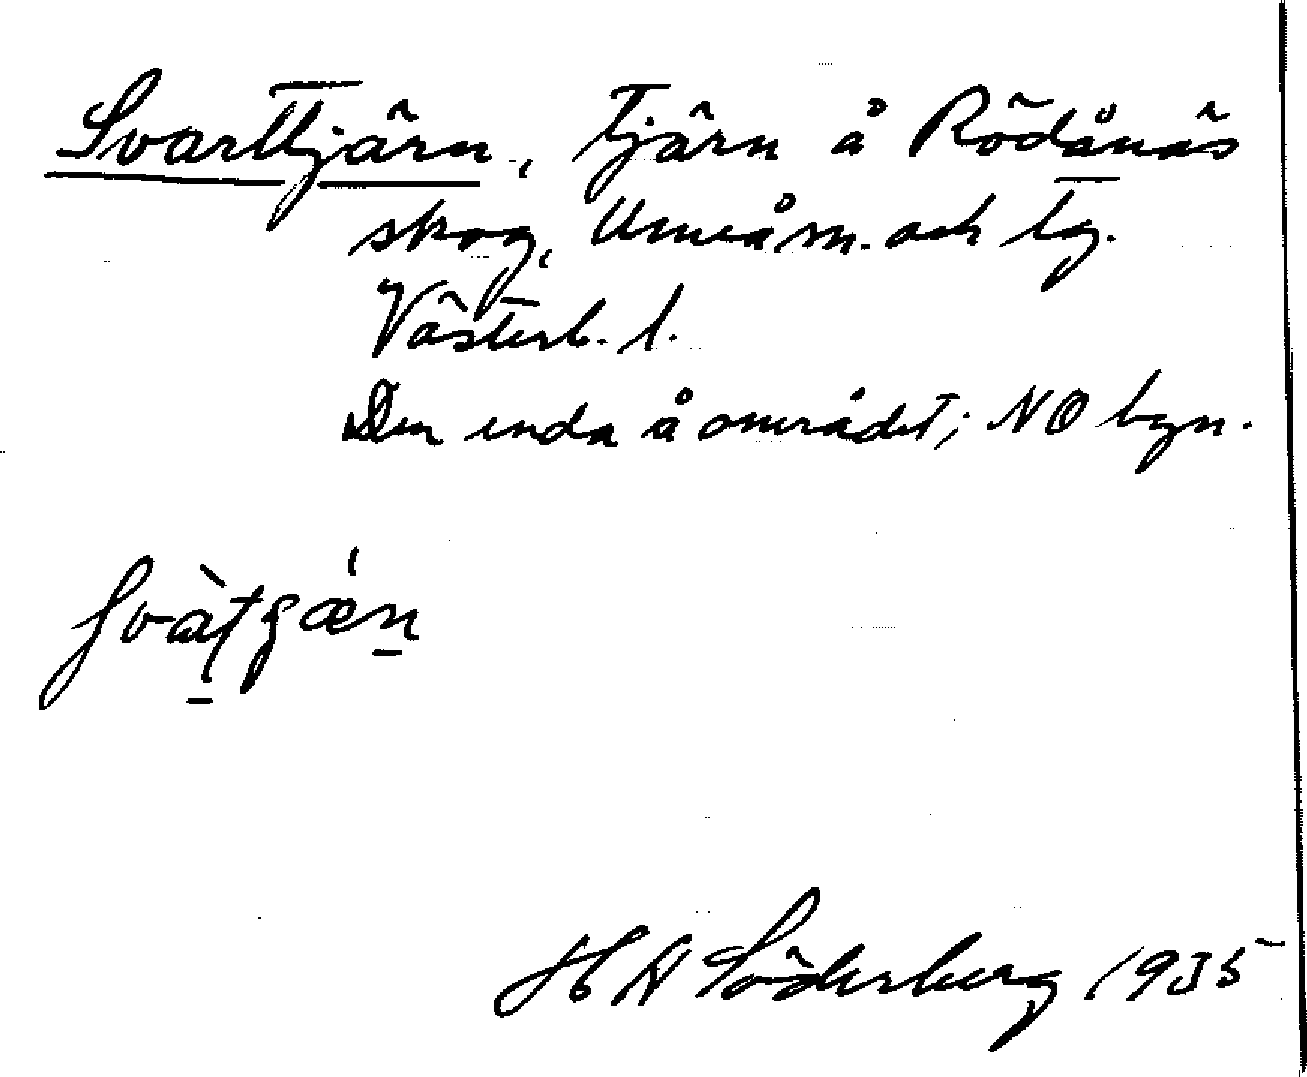 Svarttjärn, tjärn å Rödånäs
skog, Umeå sn. och tg.
Västerb. l.
Den enda å området; NO byn.
H N Söderberg 1935